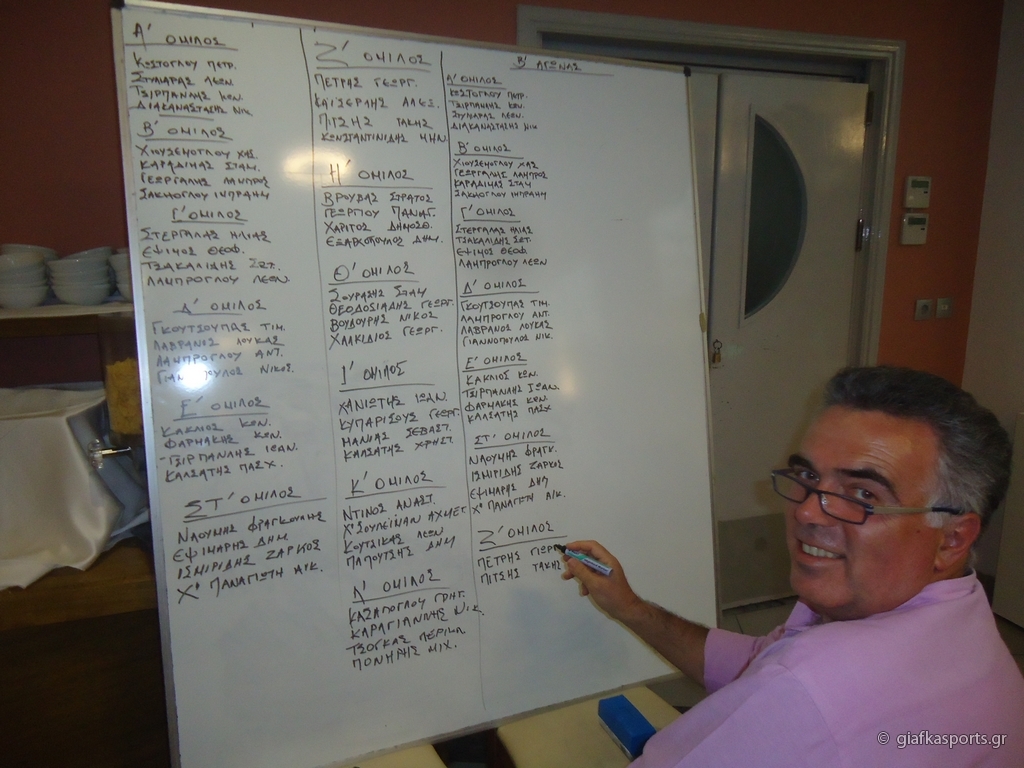 Α' ΟΜΙΛΟΣ
ΚΩΣΤΟΓΛΟΥ ΠΕΤΡ.
ΣΤΥΛΙΑΡΑΣ ΛΕΩΝ.
ΤΣΙΡΠΑΝΛΗΣ ΚΩΝ.
ΔΙΑΚΑΝΑΣΤΑΣΗΣ ΝΙΚ.
Β' ΟΜΙΛΟΣ
ΧΙΟΥΣΕΗΟΓΛΟΥ ΧΑΣ.
ΚΑΡΑΔΙΜΑΣ ΣΤΑΜ.
ΓΕΩΡΓΑΛΗΣ ΛΑΜΠΡΟΣ
ΣΑΚΗΟΓΛΟΥ ΙΜΠΡΑΗΜ
Γ' ΟΜΙΛΟΣ
ΣΤΕΡΓΑΛΑΣ ΗΛΙΑΣ
ΕΨΙΜΟΣ ΘΕΟΦ.
ΤΣΑΚΑΛΙΔΗΣ ΣΩΤ.
ΛΑΜΠΡΟΓΛΟΥ ΛΕΩΝ.
Δ' ΟΜΙΛΟΣ
ΓΚΟΥΤΣΟΥΠΑΣ ΤΙΜ.
ΛΑΒΡΑΝΟΣ ΛΟΥΚΑΣ
ΛΑΜΠΡΟΓΛΟΥ ΑΝΤ.
ΓΙΑΝΝΟΠΟΥΛΟΣ ΝΙΚΟΣ
Ε' ΟΜΙΛΟΣ
ΚΑΚΛΙΟΣ ΚΩΝ.
ΦΑΡΜΑΚΗΣ ΚΩΝ.
-ΤΣΙΡΠΑΝΛΗΣ ΙΩΑΝ.
ΚΑΛΕΑΤΗΣ ΠΑΣΧ.
ΣΤ' ΟΜΙΛΟΣ
ΝΑΟΥΜΗΣ ΦΡΑΓΚΟΥΛΗΣ
ΕΨΙΜΑΡΗΣ ΔΗΜ
ΙΣΜΙΡΙΔΗΣ ΖΑΡΚΟΣ
Χ" ΠΑΝΑΓΙΩΤΗ ΑΙΚ.
Ζ' ΟΜΙΛΟΣ
ΠΕΤΡΗΣ ΓΕΩΡΓ.
ΚΑΙΣΕΡΛΗΣ ΑΛΕΞ.
ΠΙΤΣΗΣ ΤΑΚΗΣ
ΚΩΝΣΤΑΝΤΙΝΙΔΗΣ ΜΗΝ.
Η' ΟΜΙΛΟΣ
ΒΡΟΥΒΑΣ ΣΤΡΑΤΟΣ
ΓΕΩΡΓΙΟΥ ΠΑΝΑΓ.
ΧΑΡΙΤΟΣ ΔΗΜΟΣΘ.
ΕΞΑΡΧΟΠΟΥΛΟΣ ΔΗΜ.
Θ' ΟΜΙΛΟΣ
ΣΟΥΡΑΣΗΣ ΣΤΑΜ
ΘΕΟΔΟΣΙΑΔΗΣ ΓΕΩΡΓ.
ΒΟΥΔΟΥΡΗΣ ΝΙΚΟΣ
ΧΑΛΚΙΔΙΟΣ ΓΕΩΡΓ.
Ι' ΟΜΙΛΟΣ
ΧΑΝΙΩΤΗΣ ΙΩΑΝ.
ΚΥΠΑΡΙΣΟΥΣ ΓΕΩΡΓ.
ΜΑΝΙΑΣ ΣΕΒΑΣΤ.
ΚΑΛΕΑΤΗΣ ΧΡΗΣΤ.
Κ' ΟΜΙΛΟΣ
ΝΤΙΝΟΣ ΑΝΑΣΤ.
Χ"ΣΟΥΛΕΙΜΑΝ ΑΧΜΕΤ
ΚΟΥΤΣΙΚΑΣ ΛΕΩΝ
ΠΑΠΟΥΤΣΗΣ ΔΗΜ
Λ' ΟΜΙΛΟΣ
ΚΑΖΑΠΟΓΛΟΥ ΓΡΗΓ.
ΚΑΡΑΓΙΑΝΝΗΣ ΝΙΚ.
ΤΣΟΓΚΑΣ ΠΕΡΙΚΛ
ΠΟΝΗΡΗΣ ΜΙΧ.
Β' ΑΓΩΝΑΣ
Α' ΟΜΙΛΟΣ
ΚΩΣΤΟΓΛΟΥ ΠΕΤΡ.
ΤΣΙΡΠΑΝΛΗΣ ΚΩΝ.
ΣΤΥΛΙΑΡΑΣ ΛΕΩΝ.
ΔΙΑΚΑΝΑΣΤΑΣΗΣ ΝΙΚ
Β' ΟΜΙΛΟΣ
ΧΙΟΥΣΕΗΟΓΛΟΥ ΧΑΣ
ΓΕΩΡΓΑΛΗΣ ΛΑΜΠΡΟΣ
ΚΑΡΑΔΙΜΑΣ ΣΤΑΜ
ΣΑΚΗΟΓΛΟΥ ΙΜΠΡΑΗΜ
Γ' ΟΜΙΛΟΣ
ΣΤΕΡΓΑΛΑΣ ΗΛΙΑΣ
ΤΣΑΚΑΛΙΔΗΣ ΣΩΤ.
ΕΨΙΜΟΣ ΘΕΟΦ
ΛΑΜΠΡΟΓΛΟΥ ΛΕΩΝ
Δ' ΟΜΙΛΟΣ
ΓΚΟΥΤΣΟΥΠΑΣ ΤΙΜ.
ΛΑΜΠΡΟΓΛΟΥ ΑΝΤ.
ΛΑΒΡΑΝΟΣ ΛΟΥΚΑΣ
ΓΙΑΝΝΟΠΟΥΛΟΣ ΝΙΚ.
Ε' ΟΜΙΛΟΣ
ΚΑΚΛΙΟΣ ΚΩΝ.
ΤΣΙΡΠΑΝΛΗΣ ΙΩΑΝ.
ΦΑΡΜΑΚΗΣ ΚΩΝ.
ΚΑΛΕΑΤΗΣ ΠΑΣΧ
ΣΤ' ΟΜΙΛΟΣ
ΝΑΟΥΜΗΣ ΦΡΑΓΚ.
ΙΣΜΙΡΙΔΗΣ ΖΑΡΚΟΣ
ΕΨΙΜΑΡΗΣ ΔΗΜ
Χ" ΠΑΝΑΓΙΩΤΗ ΑΙΚ.
Ζ' ΟΜΙΛΟΣ
ΠΕΤΡΗΣ ΓΕΩΡΓ
ΠΙΤΣΗΣ ΤΑΚΗΣ
© giafkasports.gr